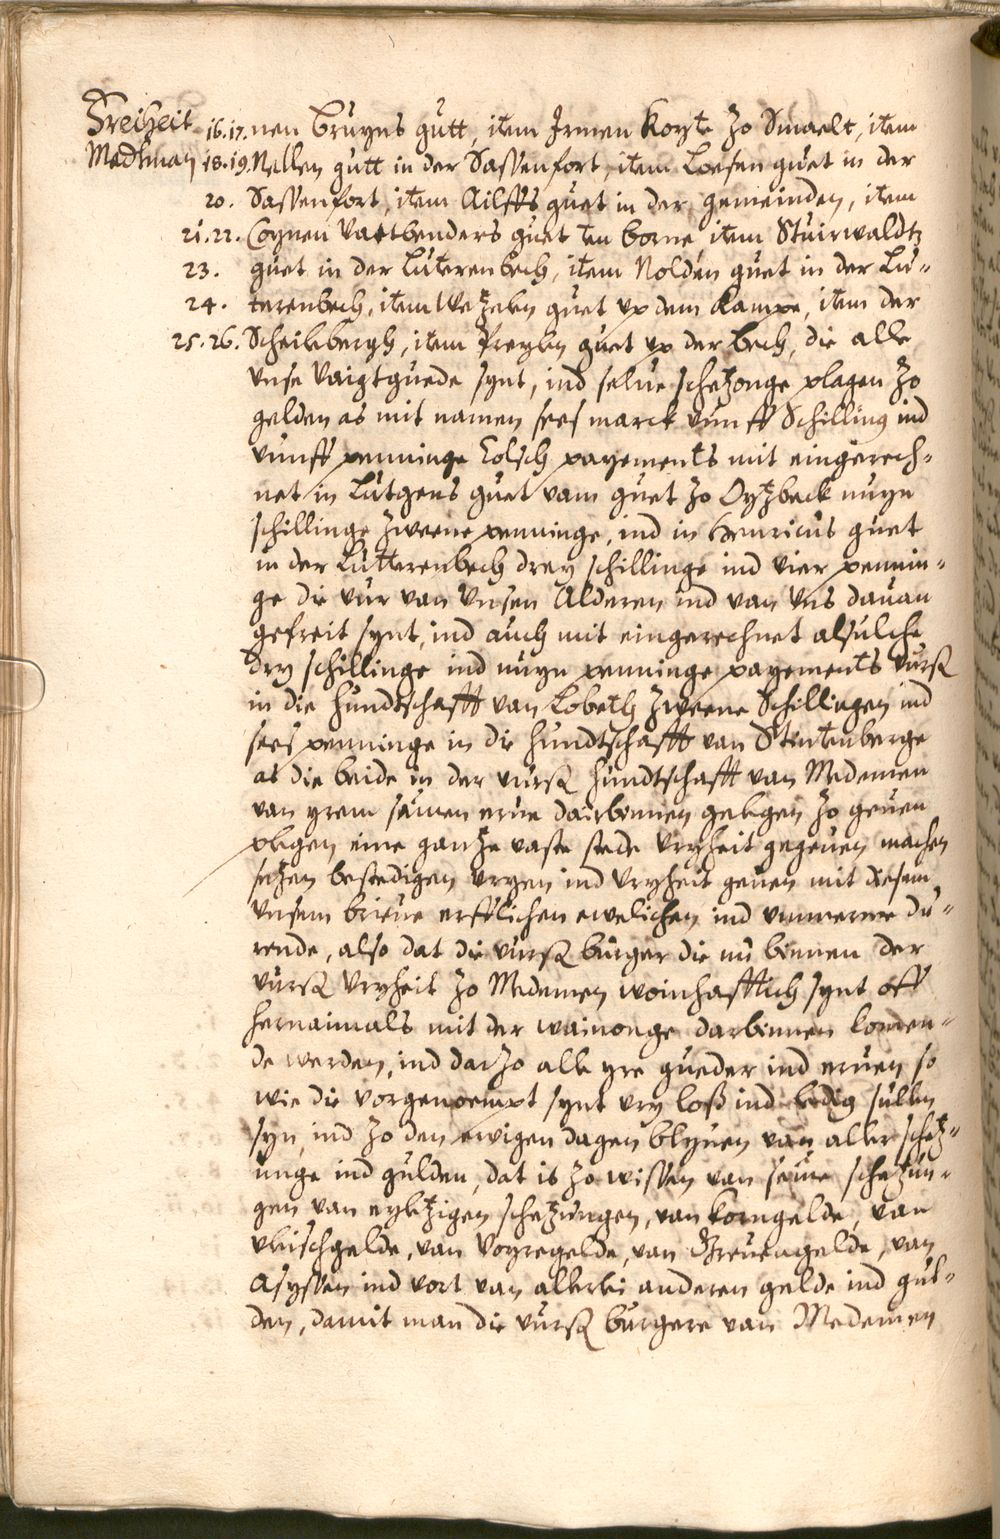 Freiheit 16.17. nen Bruyns gutt, item Irmen Koyte zo Smaelt, item
Medtman 18.19. Nellen gutt in der Sassenfort, item Loesen guet in der
20. Sassenfort, item Ailffs guet in der gemeinden, item
21.22. Coynen Vastbenders guet ten borne item Stuirwaldtz
23. guet in der Luterenbech, item Nolden guet in der Lu-
24. terenbech, item Wetzelen guet up dem Kampe, item der
25.26. Scheilebergh, item Preylen guet up der bech, die alle
unse Vaigtguede synt, ind selue schetzonge plagen zo
gelden as mit namen sees marck vunff Schilling ind
vunff penninge Colsch payements mit eingerech-
net in Lutgens guet vam guet zo Oytzbeck nuyn
schillinge zweene penninge, ind in Henricus guet
in der Lutterenbech drey schillinge ind vier pennin-
ge die vur van Unsen Alderen ind van Uns dauan
gefreit synt, ind auch mit eingerechnet alsulche
dry schillinge ind nuyn penninge payements vursz
in die hundtschafft van Lobeth zweene Schillingen ind
sees penninge in die hundtschafft van Stintenberge
as die beide in der vursz hundtschafft van Medemen
van yrem samen erue dairbinnen gelegen zo geuen
plegen eine gantze vaste stede Vryheit gegeuen machen
setzen bestedigen vryen ind Vryheit geuen mit diesem
Unsem brieue erfflichen ewelichen ind ummerme du-
rende, also dat die vursz burger die nu binnen der
vursz Vryheit zo Medemen woinhafftich synt off
hernaimals mit der wainonge darbinnen komen-
de werden, ind darzo alle yre gueder ind eruen so
wie die vorgenoempt synt vry loß ind ledig sullen
syn, ind zo den ewigen dagen blyuen van aller schetz-
unge ind gulden, dat is zo wissen van seue schetzun-
gen van eyletzigen schetzungen, van korngelde, van
vleischgelde, van Voyregelde, van Greuengelde, van
Asyssen ind vort van allerlei anderen gelde ind gul-
den, damit man die vursz burgere van Medemen